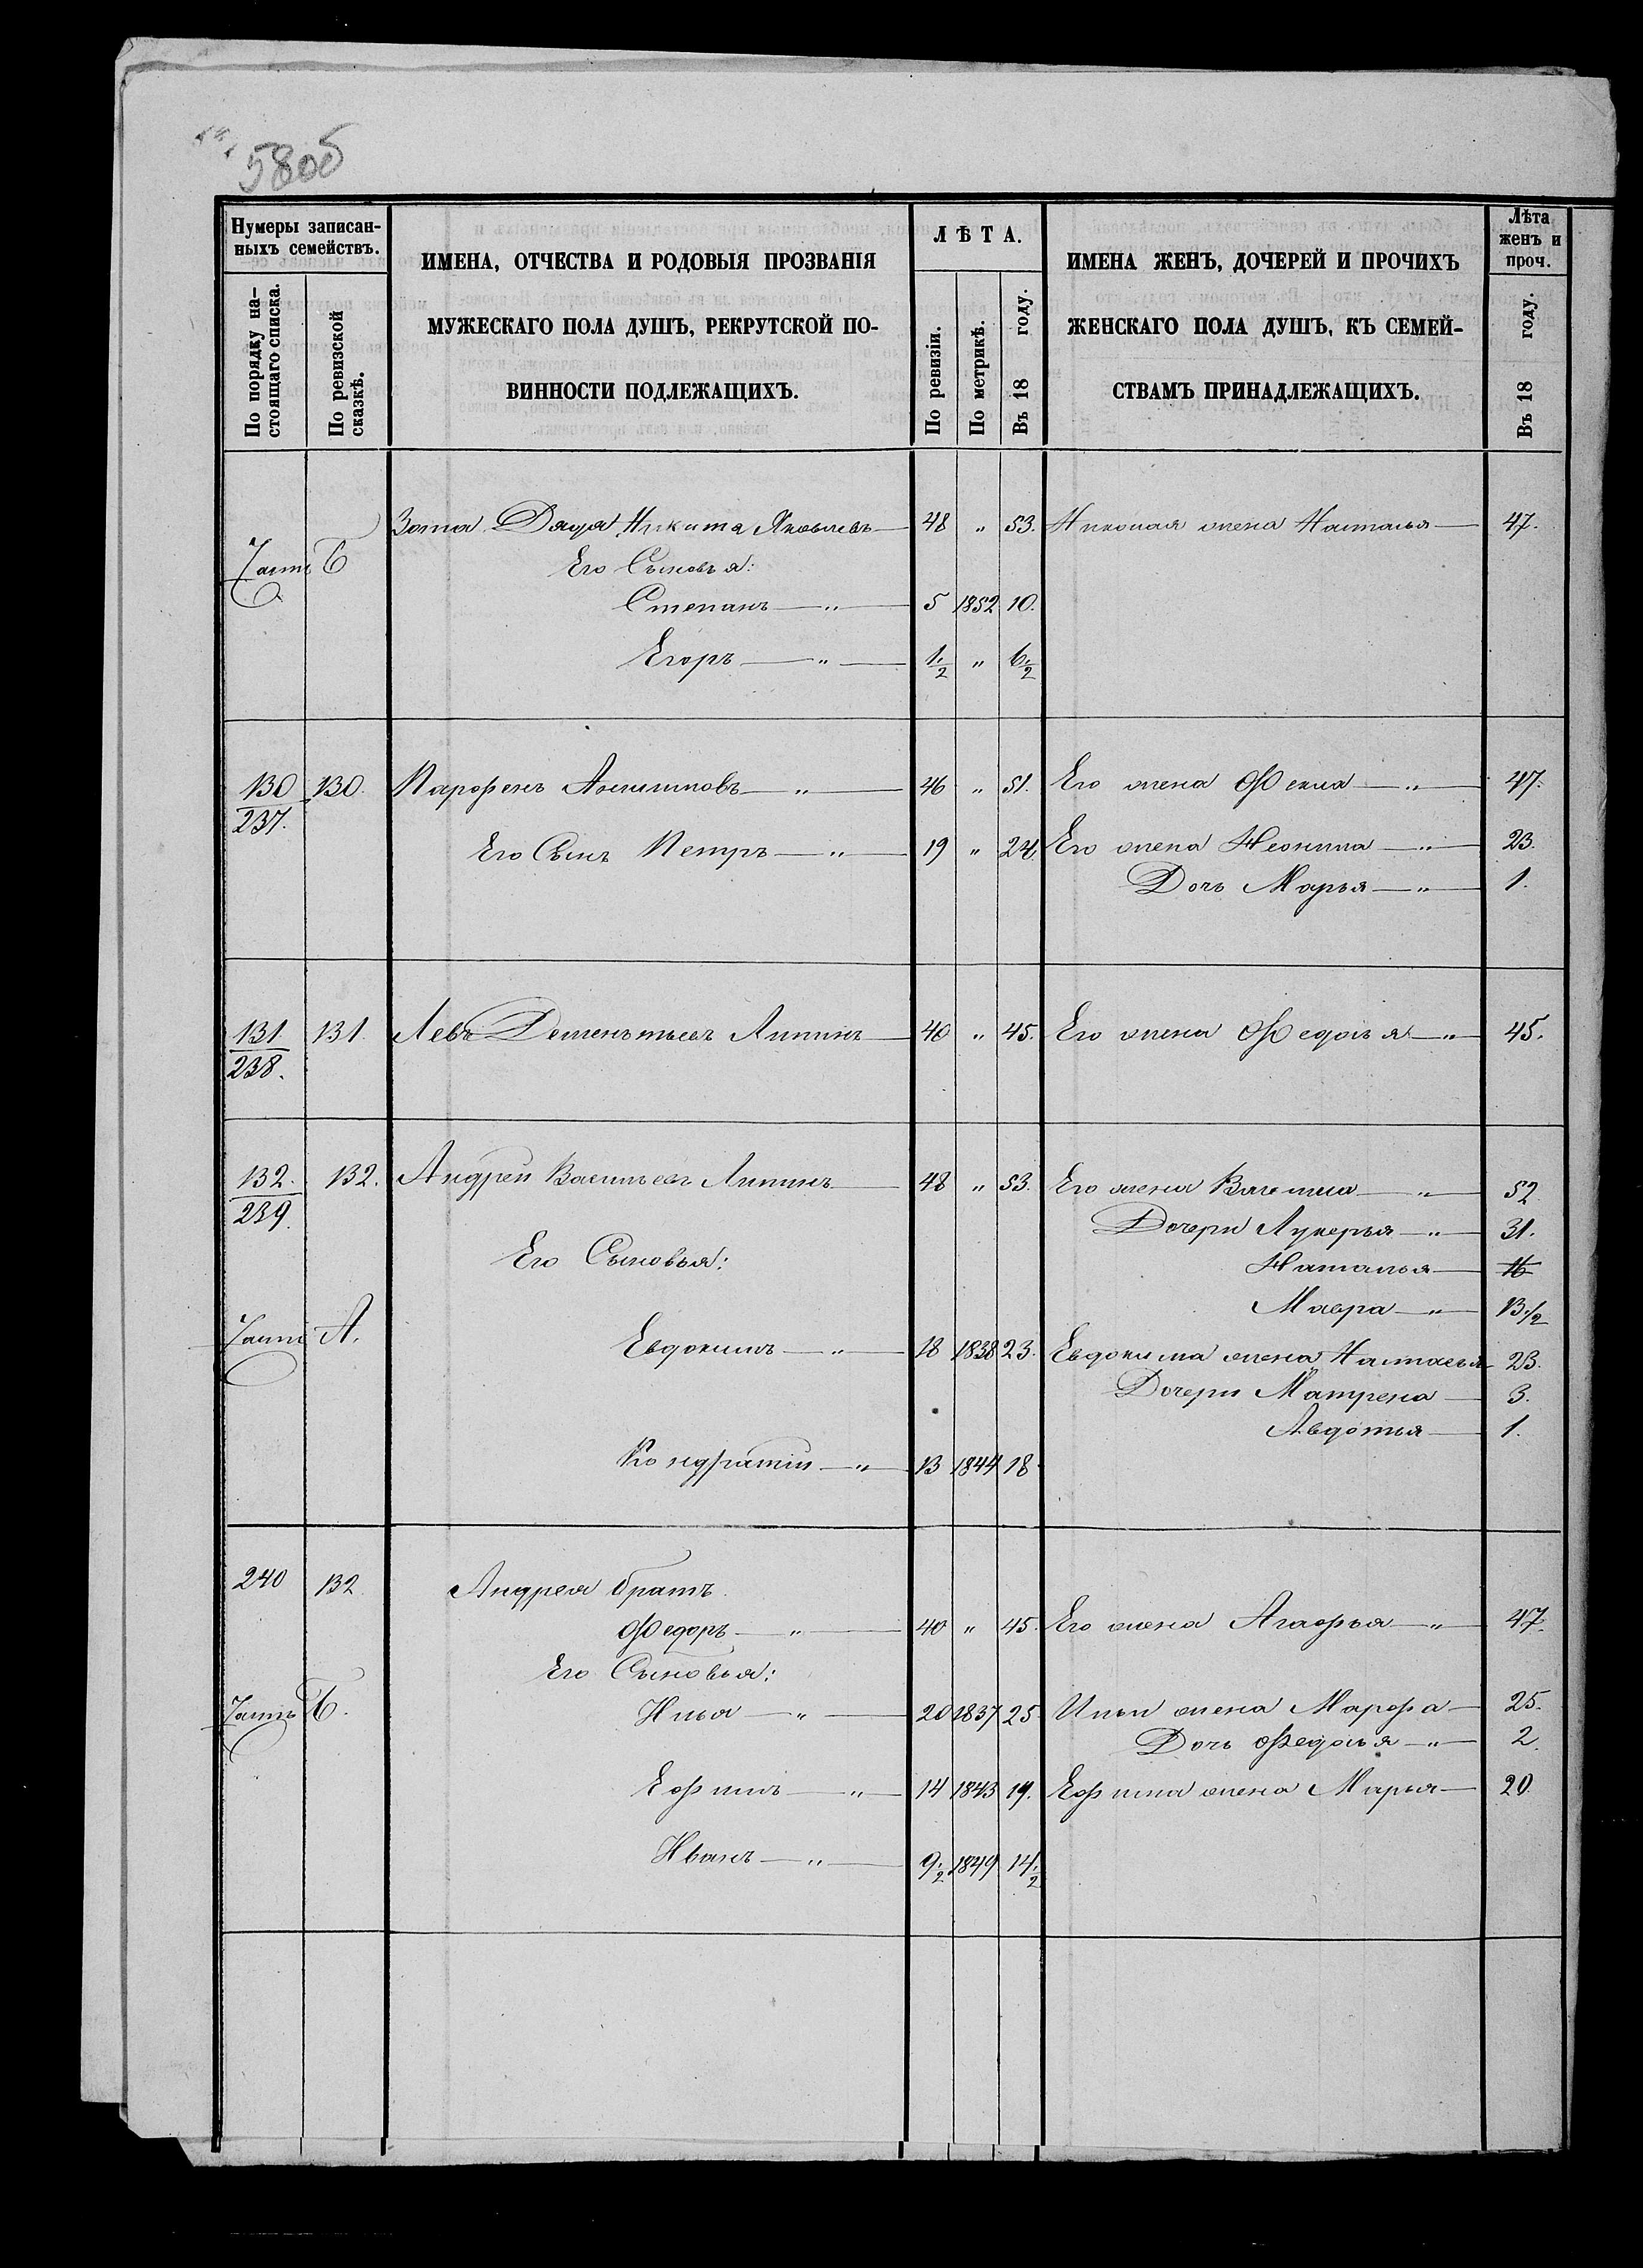 580б
Нумеры записан-
ныхъ семействъ.
По порядку на-
стоящаго списка.
По ревизской
сказкѣ.
ИМЕНА, ОТЧЕСТВА И РОДОВЫЯ ПРОЗВАНІЯ
МУЖЕСКАГО ПОЛА ДУШЪ, РЕКРУТСКОЙ ПО-
ВИННОСТИ ПОДЛЕЖАЩИХЪ.
ЛѢТА.
По ревизіи.
По метрикѣ.
Въ 18 году.
ИМЕНА ЖЕНЪ, ДОЧЕРЕЙ И ПРОЧИХЪ
ЖЕНСКАГО ПОЛА ДУШЪ, КЪ СЕМЕЙ-
СТВАМЪ ПРИНАДЛЕЖАЩИХЪ.
Лѣта
женъ и
проч.
Въ 18 году.
Зота Дядя Никита Яковлевъ 48 " 53. жена Наталья 47.
Часть Б Его Сыновья:
Степанъ " 5 1852 10.
Егоръ " 1 1/2 " 6 1/2
130 130. Парфенъ Анисимовъ " 46 " 51. Его жена Фекла " 47.
237.
Его Сынъ Петръ " 19 " 24. Его жена Неонила " 23.
Дочь Марья " 1.
131 131. Левъ Дементьевъ Липинъ 40 " 45. Его жена Федосья " 45.
238.
132. 132. Андрей Васильевъ Липинъ 48 " 53. Его жена " 52
239.
Дочери Лукерья " 31.
Его Сыновья: Наталья 16
Мавра " 13 1/2
Часть А. Евдокимъ " 18 1838 23. Евдокима жена Настасья 23.
Дочери Матрена 3.
Авдотья 1.
Кондратій " 13 1844 18.
240 132 Андрея братъ
Федоръ " 40 " 45. Его жена Агафья " 47.
Его Сыновья:
Часть Б. Илья " 20 1837 25. Ильи жена Марфа 25.
Дочь Федосья " 2.
Ефимъ " 14 1843 19. Ефима жена Марья 20.
Иванъ " 9 1/2 1849 14 1/2